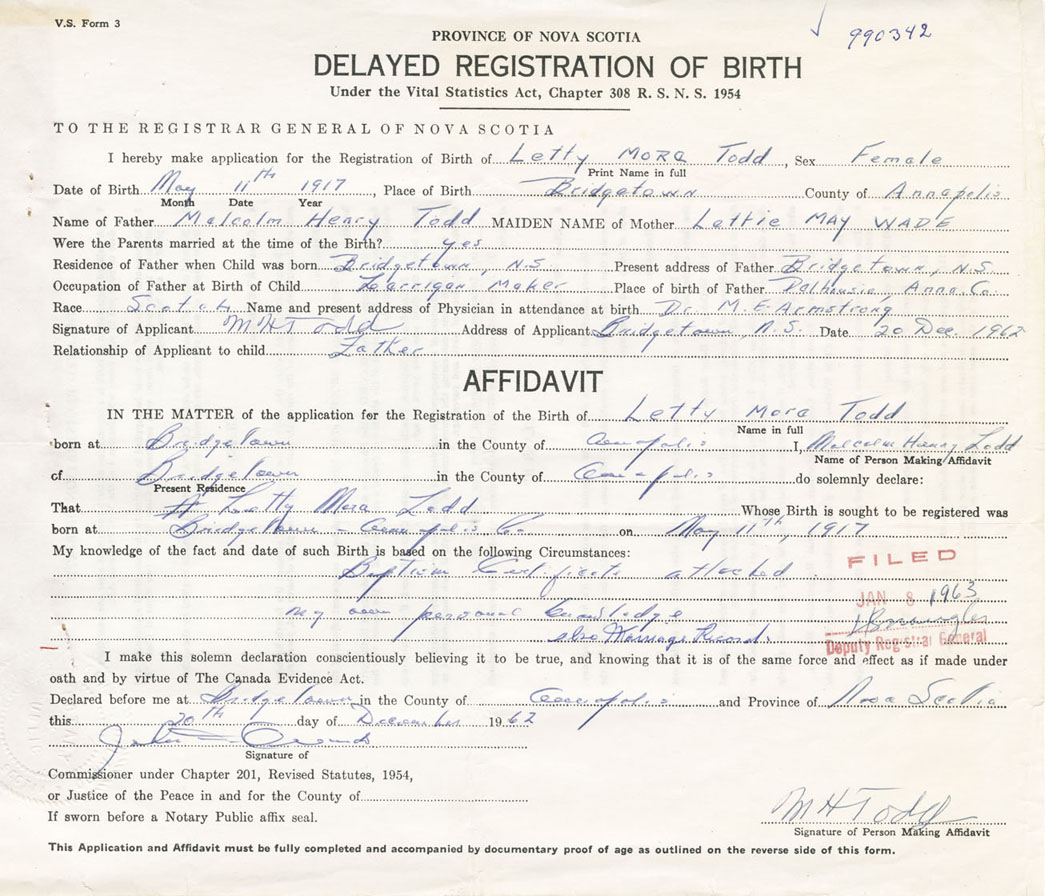 V.S. Form 3
990342
PROVINCE OF NOVA SCOTIA
DELAYED REGISTRATION OF BIRTH
Under the Vital Statistics Act, Chapter 308 R. S. N. S. 1954
TO THE REGISTRAR GENERAL OF NOVA SCOTIA
I hereby make application for the Registration of Birth of Letty MORA Todd, Sex Female
Print Name in full
Date of Birth May 11th 1917, Place of Birth Bridgetown County of Annapolis
Month Date Year
Name of Father Malcolm Henry Todd MAIDEN NAME of Mother Lettie MAY WADE
Were the Parents married at the time of the Birth? yes
Residence of Father when Child was born Bridgetown, N.S. Present address of Father Bridgetown, N.S.
Occupation of Father at Birth of Child Larrigan Maker Place of birth of Father Dalhousie, Anna. Co.
Race Scotch Name and present address of Physician in attendance at birth Dr. M. E. Armstrong
Signature of Applicant M H Todd Address of Applicant Bridgetown, N.S. Date 20 Dec. 1962
Relationship of Applicant to child Father
AFFIDAVIT
IN THE MATTER of the application for the Registration of the Birth of Letty Mora Todd
Name in full
born at Bridgetown in the County of Annapolis I, Malcolm Henry Todd
Name of Person Making Affidavit
of Bridgetown in the County of Annapolis do solemnly declare:
Present Residence
That Letty Mora Todd Whose Birth is sought to be registered was
born at Bridgetown - Annapolis Co. on May 11th, 1917
My knowledge of the fact and date of such Birth is based on the following Circumstances:
FILED
Baptism Certificate attached.
JAN 8 1963
my own personal knowledge
also Marriage Record.
Deputy Registrar General
I make this solemn declaration conscientiously believing it to be true, and knowing that it is of the same force and effect as if made under
oath and by virtue of The Canada Evidence Act.
Declared before me at Bridgetown in the County of Annapolis and Province of Nova Scotia
this 20th day of December 1962
Signature of
Commissioner under Chapter 201, Revised Statutes, 1954,
or Justice of the Peace in and for the County of
If sworn before a Notary Public affix seal.
M H Todd
Signature of Person Making Affidavit
This Application and Affidavit must be fully completed and accompanied by documentary proof of age as outlined on the reverse side of this form.